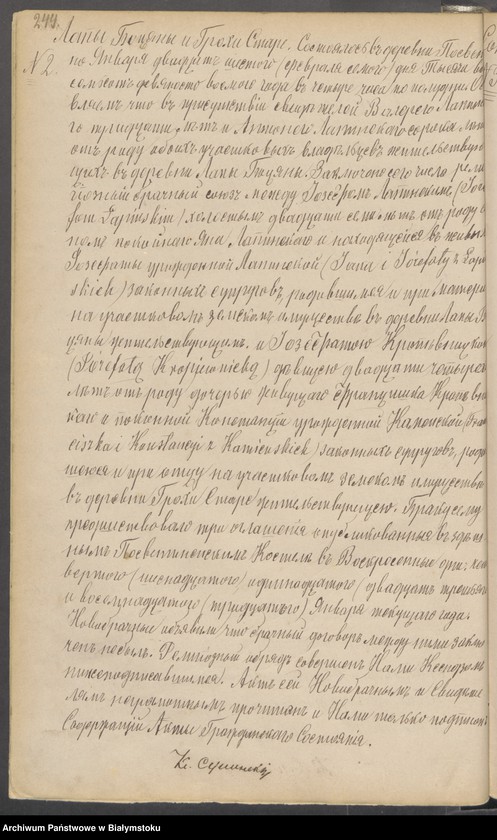 244.
Лапы Боцяны и Грохи Старе. Состоялось въ деревни Посвен
№ 2. на Января двадцать шестого (Февраля седьмого) дня Тысяча во
семсотъ девяносто восьмого года въ четыре часа по полудни. Объ
являемъ что въ присутствіи свидѣтелей Валерего Лапин
го тридцати лѣтъ и Антонего Лапинскаго сорока лѣтъ
отъ роду обоихъ участковыхъ владѣльцевъ жительствую
щихъ въ деревни Лапы Боцяны. Заключенъ сего числа рели
гіозный брачный союзъ между Іозефомъ Лапинскимъ (Józe
fem Łapińskim) холостымъ двадцати семи лѣтъ отъ роду с
номъ покойнаго Яна Лапинскаго и находящейся въ живы
Іозефаты урожденной Лапинской (Jana i Józefaty z Łapi
skich) законныхъ супруговъ, родившимся и при матери
на участковомъ земскомъ имуществѣ въ деревни Лапы Бо
цяны жительствующимъ. и Іозефатою Кропѣвницкою
(Józefatą Kropiewnicką) дѣвицею двадцати четырехъ
лѣтъ отъ роду дочерью живущаго Францишка Кропѣвни
каго и покойной Констанціи урожденной Каменской (Fran
ciszka i Konstancji z Kamieńskich) законныхъ супруговъ, роди
шеюся и при отцу на участковомъ земскомъ имуществѣ
въ деревни Грохи Старе жительствующею. Браку сему
предшествовало три оглашенія опубликованныя въ здѣш
нымъ Посвентненскимъ Костелѣ въ Воскресные дни: чет
вертого (шеснадцатого) одинадцатого (двадцать третьяго)
и восемнадцатого (тридцатого) Января текущаго года.
Новобрачные объявили что брачный договоръ между ними заклю
ченъ небылъ. Религіозный обрядъ совершенъ Нами Ксендзомъ
нижеподписавшимся. Актъ сей Новобрачнымъ и Свидѣте
лямъ неграмотнымъ прочитанъ и Нами только подписанъ
Содержащій Акты Гражданскаго Состоянія.
Archiwum Państwowe w Białymstoku